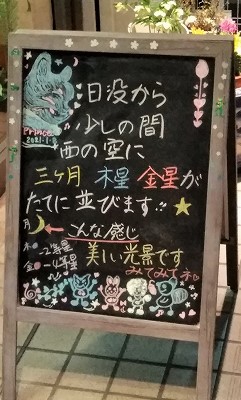 Prince
日没から
少しの間
西の空に
三ヶ月 木星 金星が
たてに並びます!!
月 ← こんな感じ
木 -2等星
金 -4等星
美しい光景です
みてみてネ